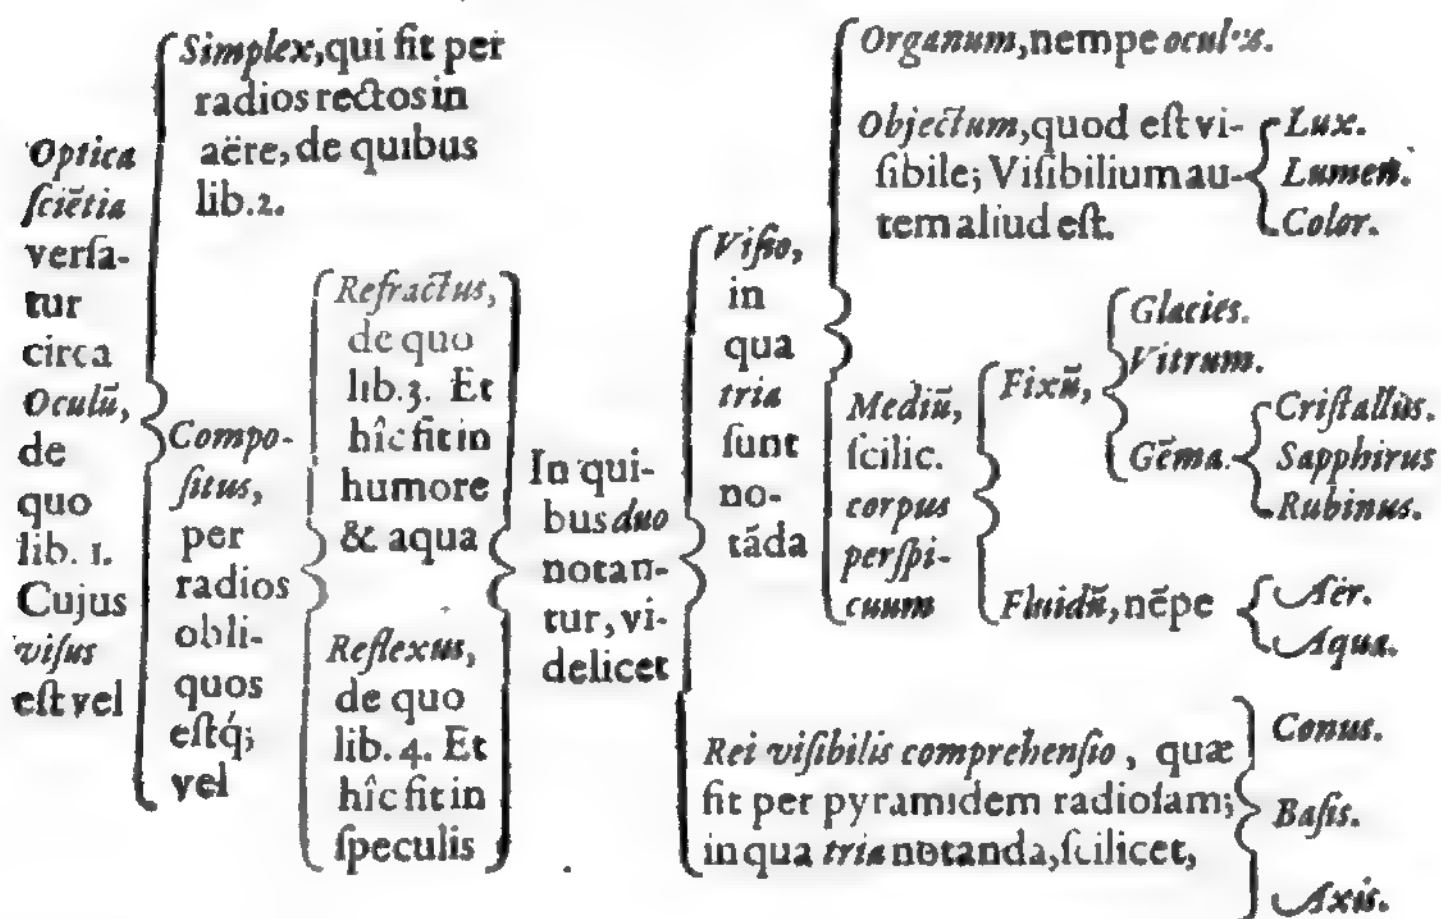 Optica
ſciẽtia
verſa-
tur
circa
Oculũ,
de
quo
lib. 1.
Cujus
viſus
eſt vel
Simplex, qui fit per
radios rectos in
aëre, de quibus
lib. 2.
Compo-
ſitus,
per
radios
obli-
quos
eſtq́;
vel
Refractus,
de quo
lib. 3. Et
hîc fit in
humore
& aqua
Reflexus,
de quo
lib. 4. Et
hîc fit in
ſpeculis
In qui-
bus duo
notan-
tur, vi-
delicet
Viſio,
in
qua
tria
ſunt
no-
tãda
Organum, nempe oculus.
Objectum, quod eſt vi-
ſibile; Viſibilium au-
tem aliud eſt.
Lux.
Lumen.
Color.
Mediũ,
ſcilic.
corpus
perſpi-
cuum
Fixũ,
Glacies.
Vitrum.
Gẽma.
Criſtallus.
Sapphirus
Rubinus.
Fluidũ, nẽpe
Aër.
Aqua.
Rei viſibilis comprehenſio, quæ
fit per pyramidem radioſam;
in qua tria notanda, ſcilicet,
Conus.
Baſis.
Axis.